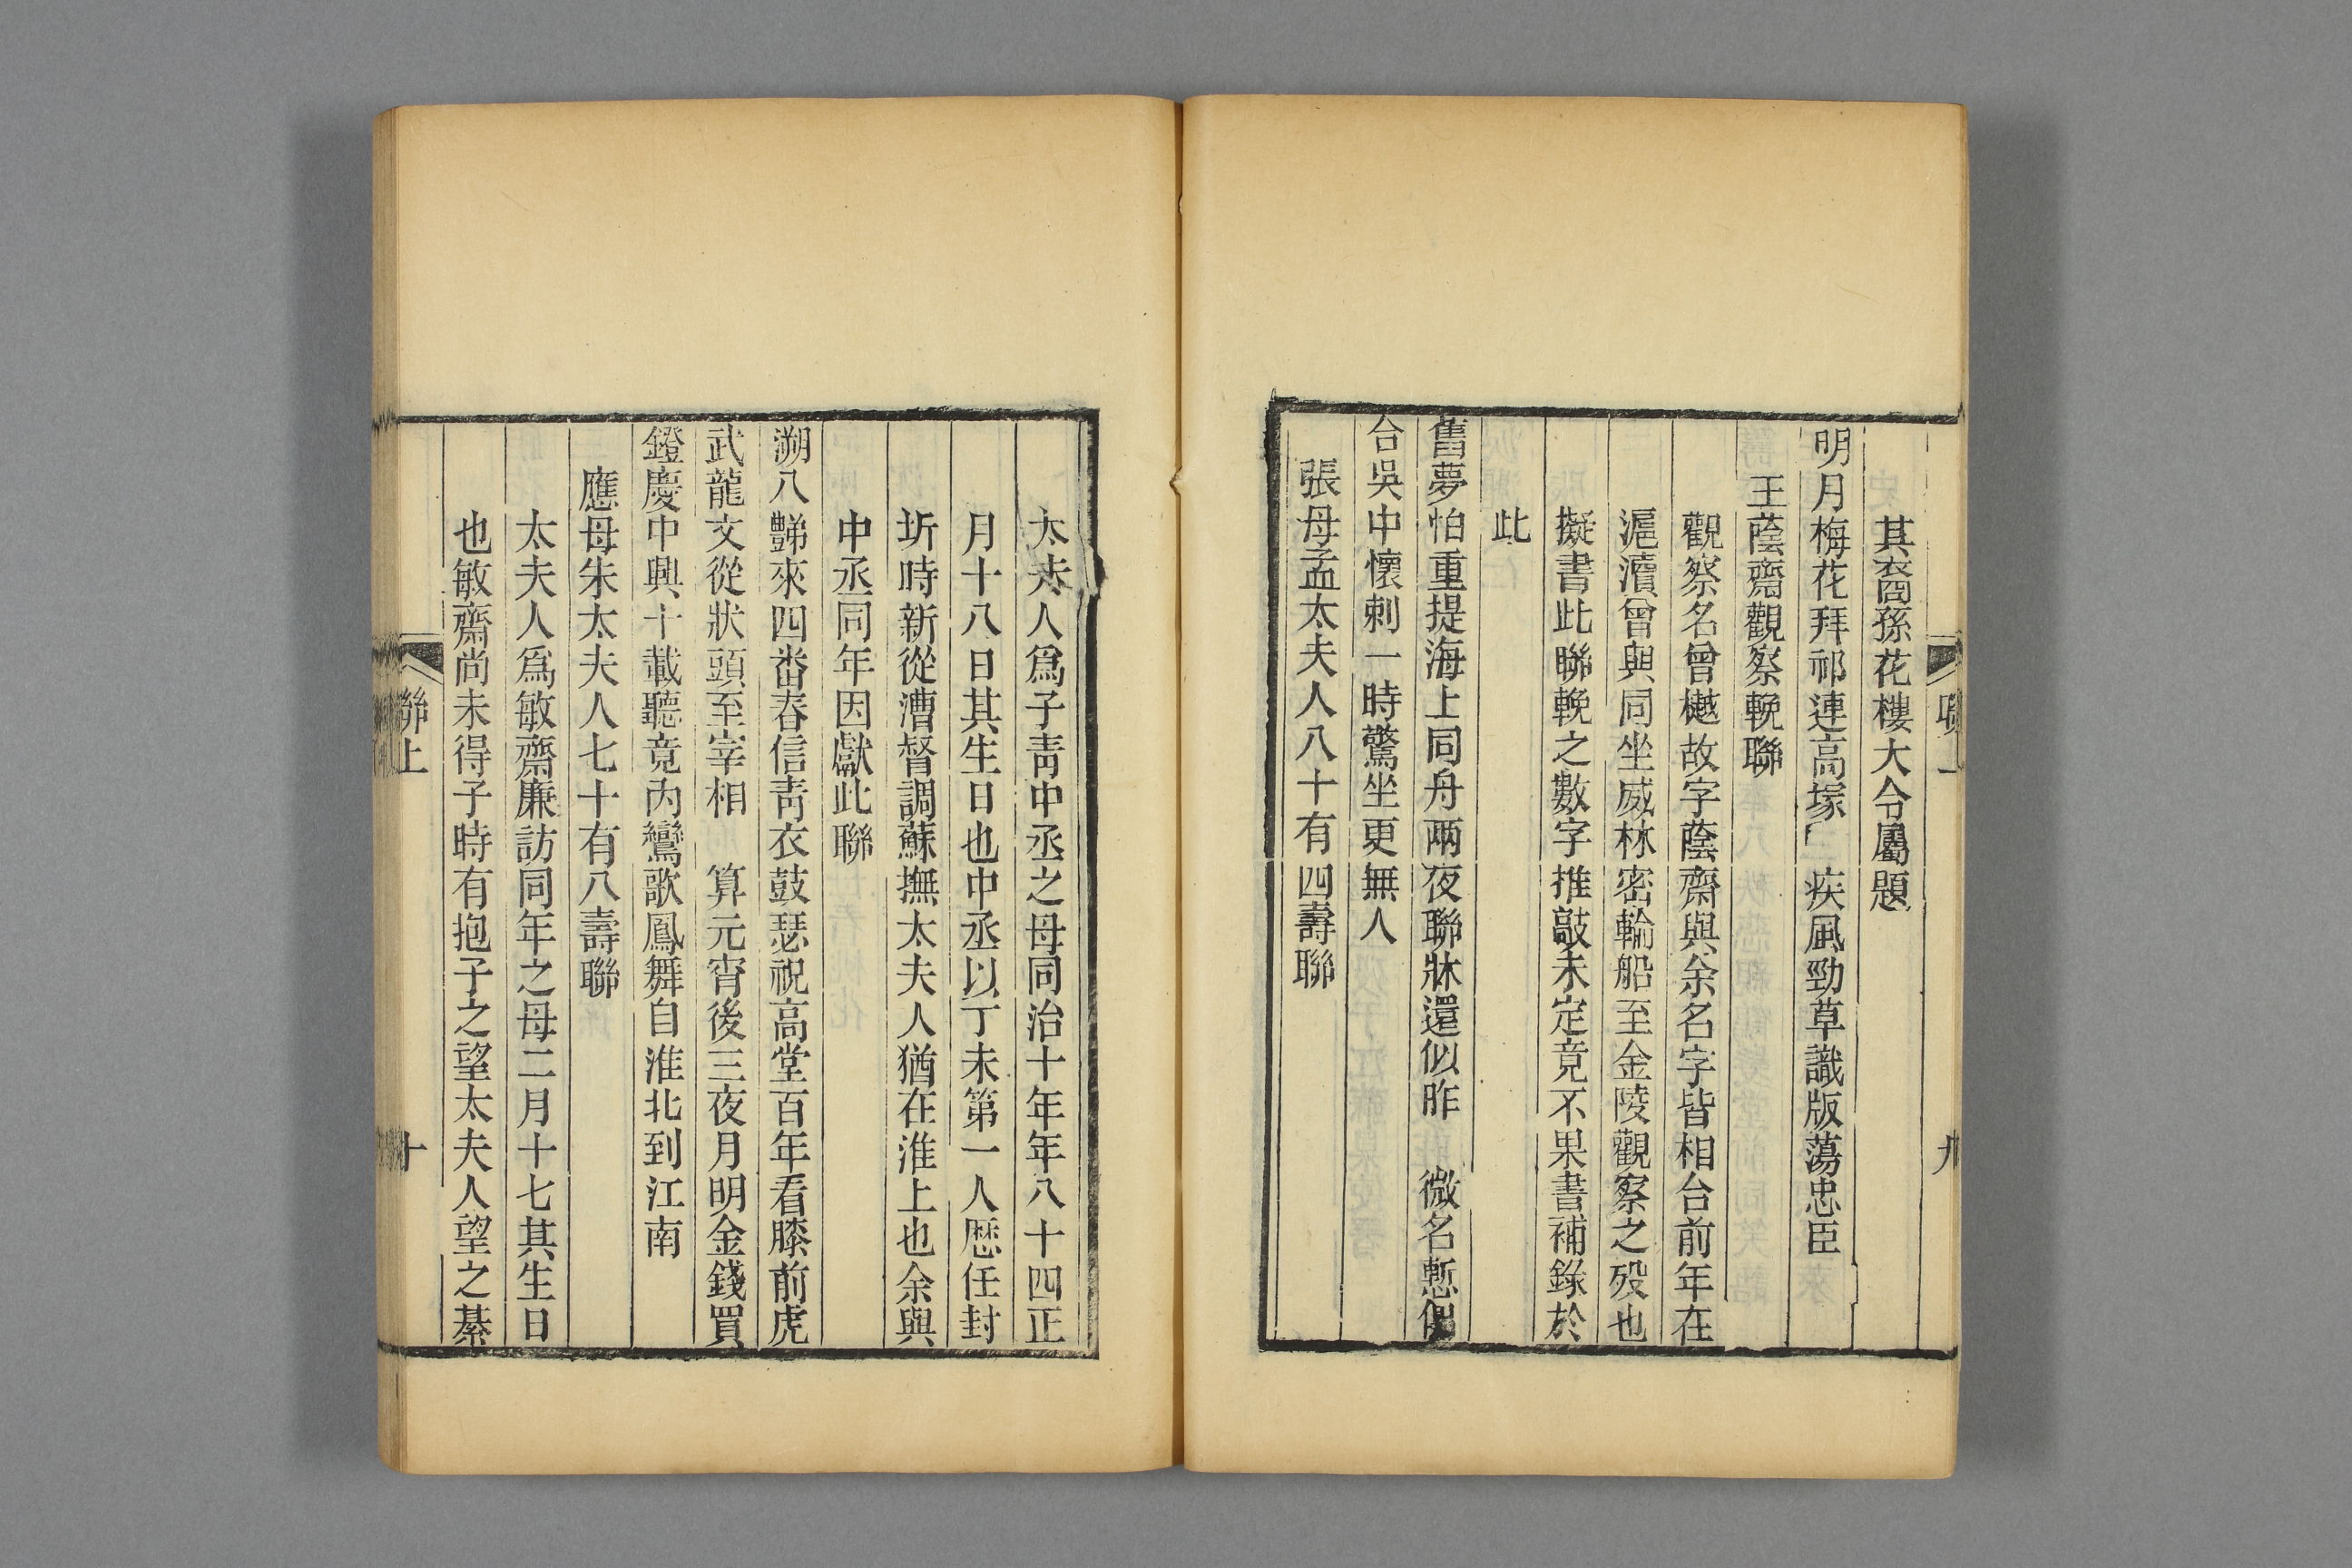 其裔孫花樓大令屬題
明月梅花拜祁連高塚　疾風勁草識版蕩忠臣
王蔭齋觀察輓聯
觀察名曾樾故字蔭齋與余名字皆相合前年在
滬瀆曾與同坐威林密輪船至金陵觀察之歿也
擬書此聯輓之數字推敲未定竟不果書補錄於
此
舊夢怕重提海上同舟兩夜聯牀還似昨　微名慙偶
合吳中懷刺一時驚坐更無人
張母孟太夫人八十有四壽聯
九
太夫人爲子靑中丞之母同治十年年八十四正
月十八日其生日也中丞以丁未第一人歷任封
圻時新從漕督調蘇撫太夫人猶在淮上也余與
中丞同年因獻此聯
溯八豑來四番春信靑衣鼓瑟祝高堂百年看膝前虎
武龍文從狀頭至宰相　算元宵後三夜月明金錢買
鐙慶中興十載聽竟內鸞歌鳳舞自淮北到江南
應母朱太夫人七十有八壽聯
太夫人爲敏齋廉訪同年之母二月十七其生日
也敏齋尚未得子時有抱子之望太夫人望之綦
聯上
十